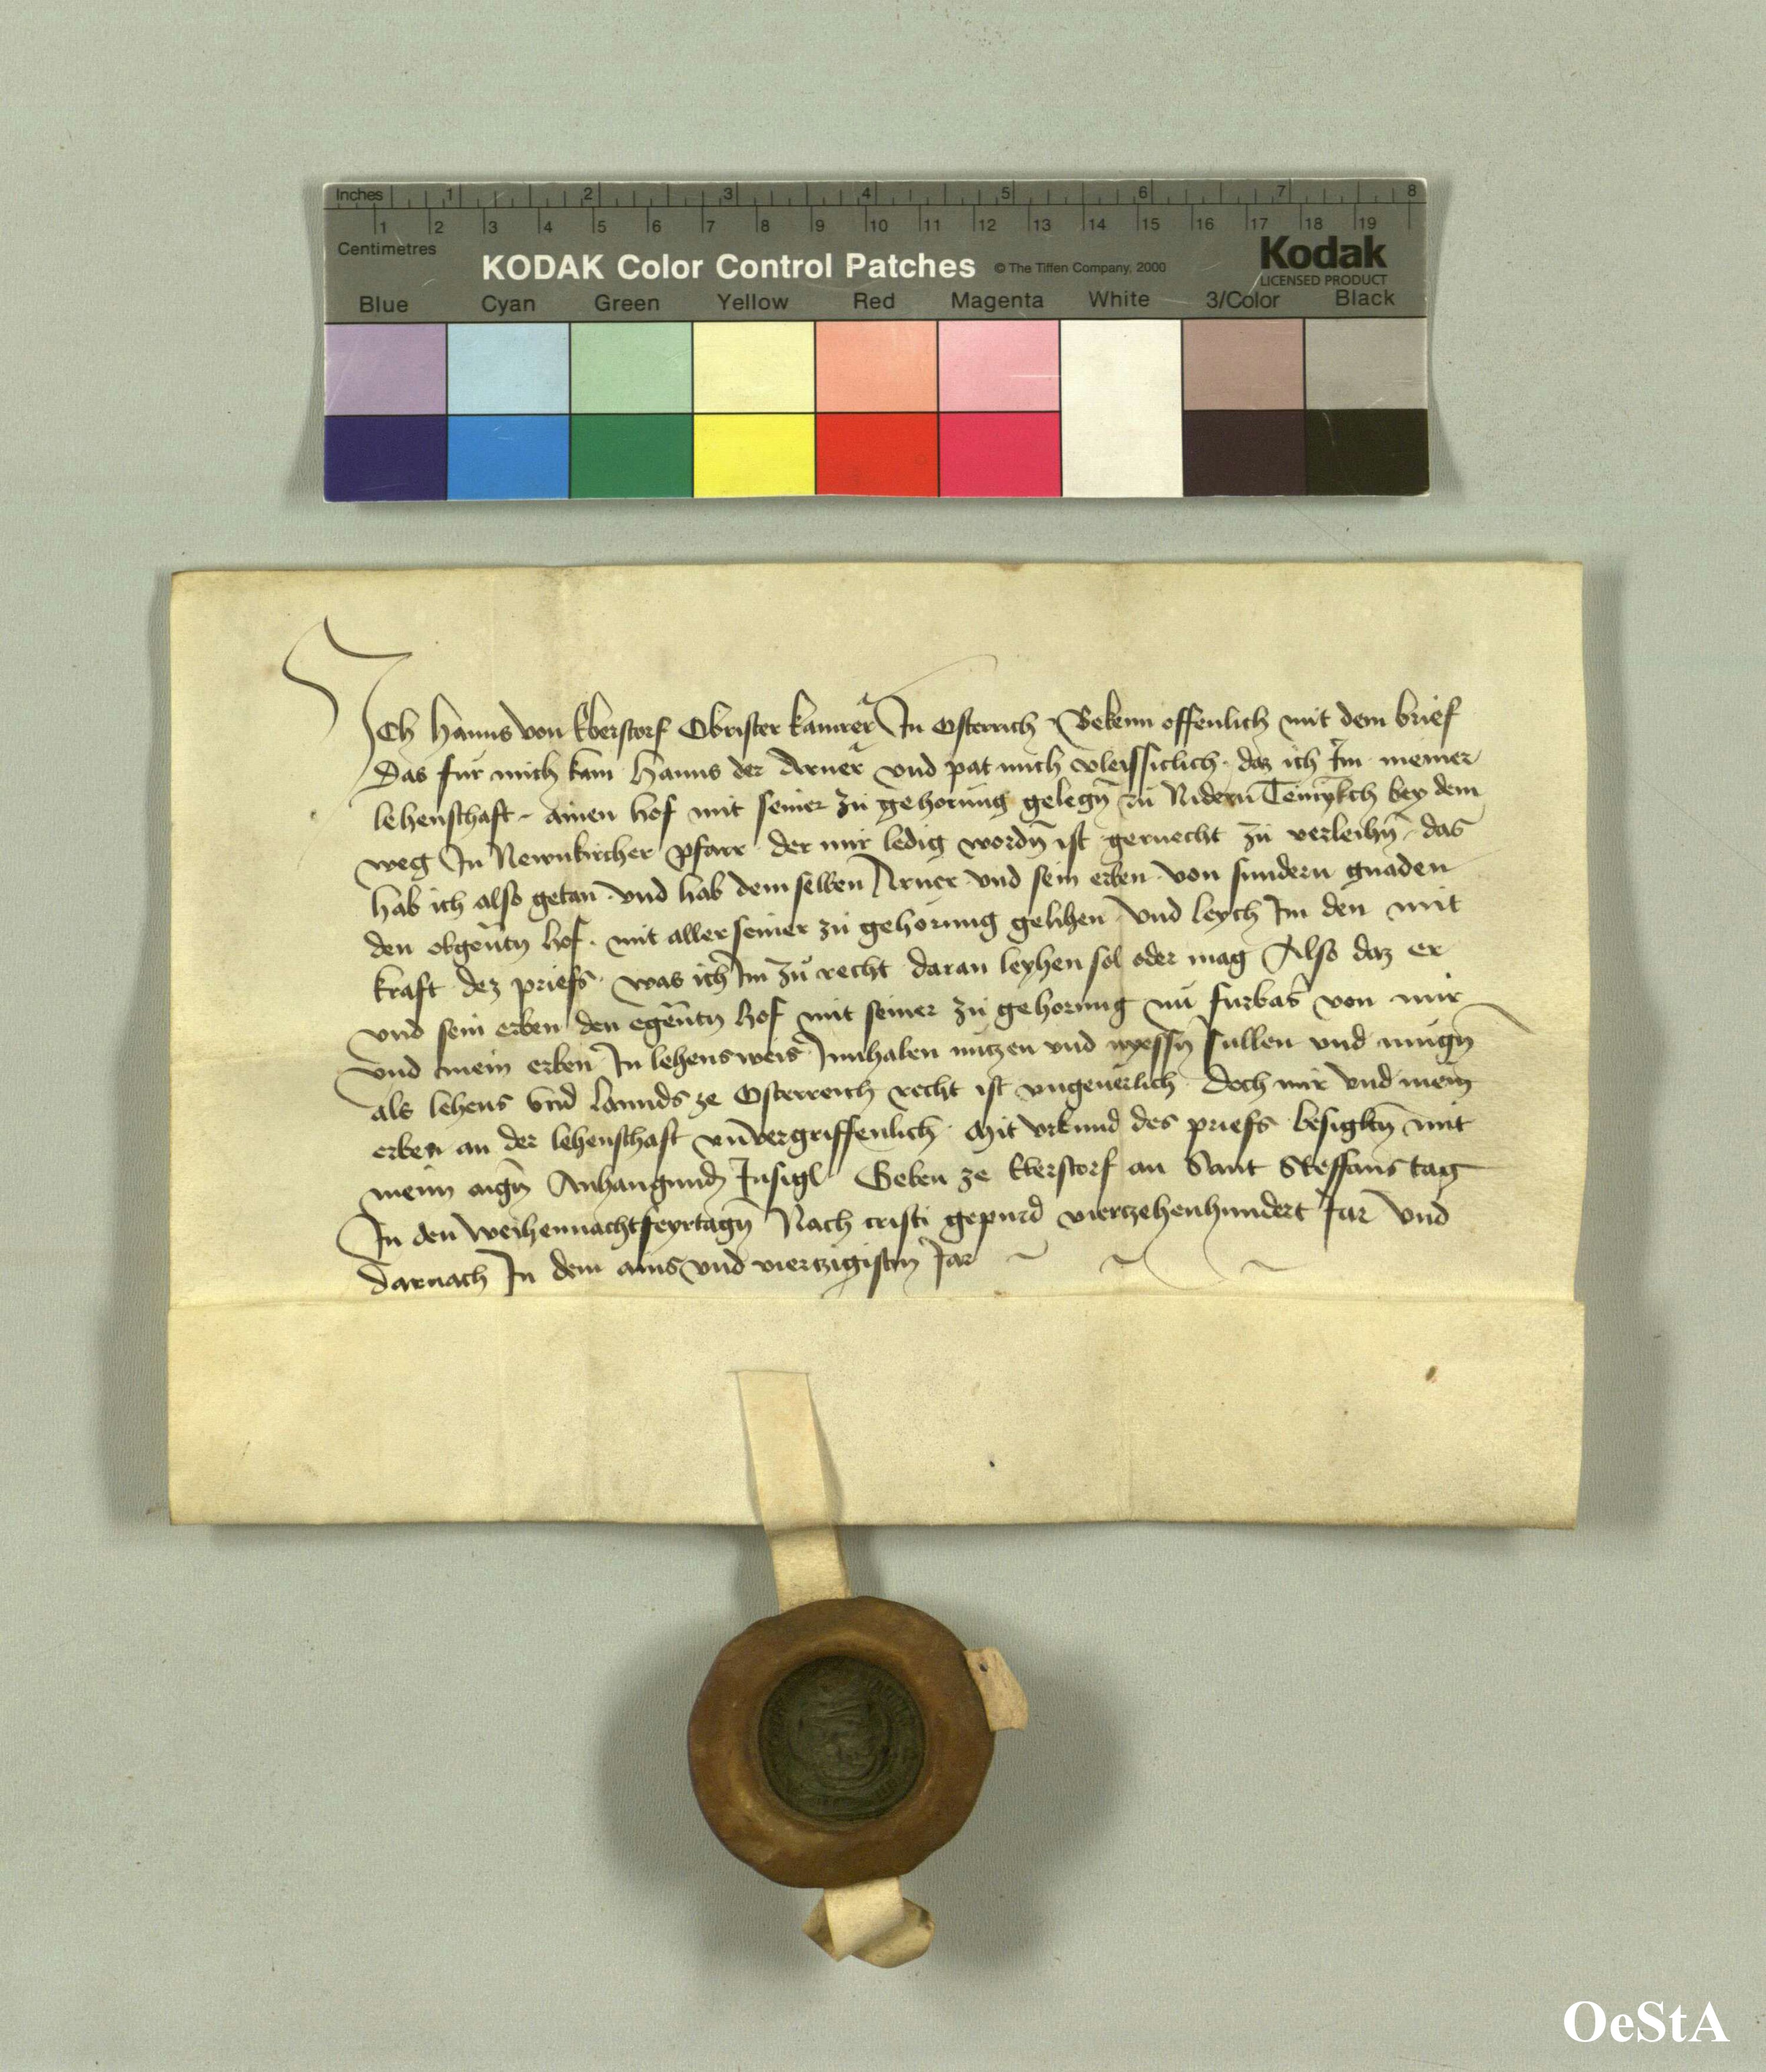 Inches 1 2 3 4 5 6 7 8
1 2 3 4 5 6 7 8 9 10 11 12 13 14 15 16 17 18 19
Centimetres
KODAK Color Control Patches © The Tiffen Company, 2000 Kodak
LICENSED PRODUCT
Blue Cyan Green Yellow Red Magenta White 3/Color Black
ICh Hanns von Eberstorf Obrister kamrer In Osterrich Bekenn offenlich mit dem brief
Das fur mich kam Hanns der Arner vnd pat mich vleissiclich daz ich Im meiner
lehenschaft ainen hof mit seiner zu gehorung gelegn zu Nidern bey dem
weg In Newnkircher pfarr der mir ledig wordn ist geruecht zu verleihn das
hab ich also getan vnd hab dem selben Arner vnd sein erben von sundern gnaden
den obgentn hof mit aller seiner zu gehorung gelihen vnd leych Im den mit
kraft dez priefs was ich Im zu recht daran leyhen sol oder mag Also daz er
vnd sein erben den egentn hof mit seiner zu gehorung nu furbas von mir
vnd mein erben In lehensweis Innhaben nutzen vnd nyessn sullen vnd mugn
als lehens vnd lannds ze Osterreich recht ist vngeuerlich doch mir vnd mein
erben an der lehenschaft vnvergriffenlich Mit vrkund des priefs besigltn mit
meim aign Anhangundn Insigl Geben ze Eberstorf an Sant Steffans tag
In den weihennachtfeyrtagn Nach cristi gepurd viertzehenhundert Jar vnd
darnach In dem ains vnd viertzigistn Jar
OeStA